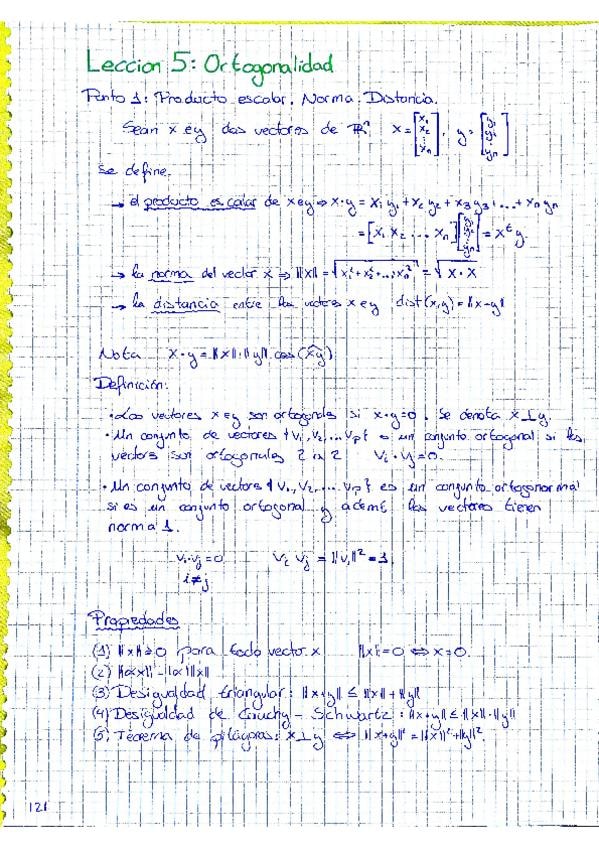 Leccion 5: Ortogonalidad
Punto 1: Producto escalar. Norma. Distancia.
Sean x e y dos vectores de ℝⁿ, x = [x₁ x₂ ⋮ xₙ], y = [y₁ y₂ ⋮ yₙ]
Se define.
→ el producto escalar de x e y ⇒ x·y = x₁y₁ + x₂y₂ + x₃y₃ + ... + xₙyₙ
= [x₁ x₂ ... xₙ] [y₁ y₂ ⋮ yₙ] = xᵗy.
→ la norma del vector x ⇒ ‖x‖ = √(x₁² + x₂² + ... + xₙ²) = √(x·x)
→ la distancia entre los vectores x e y dist(x,y) = ‖x-y‖
Nota x·y = ‖x‖·‖y‖ cos(x͡y)
Definición:
• Los vectores x e y son ortogonales si x·y=0. Se denota x⊥y.
• Un conjunto de vectores {v₁, v₂, ... vp} es un conjunto ortogonal si los
vectores son ortogonales 2 a 2 vᵢ·vⱼ=0.
• Un conjunto de vectores {v₁, v₂, ... vp} es un conjunto ortogonormal
si es un conjunto ortogonal y además los vectores tienen
norma 1.
vᵢ·vⱼ=0 vᵢ vⱼ = ‖vᵢ‖² = 1.
i≠j
Propiedades
(1) ‖x‖ ≥ 0 para todo vector x ‖x‖=0 ⇔ x=0.
(2) ‖αx‖ = |α|‖x‖
(3) Desigualdad triangular: ‖x+y‖ ≤ ‖x‖+‖y‖
(4) Desigualdad de Cauchy - Schwartz: ‖x+y‖ ≤ ‖x‖·‖y‖
(5) Teorema de pitágoras: x⊥y ⇔ ‖x+y‖² = ‖x‖²+‖y‖²
121